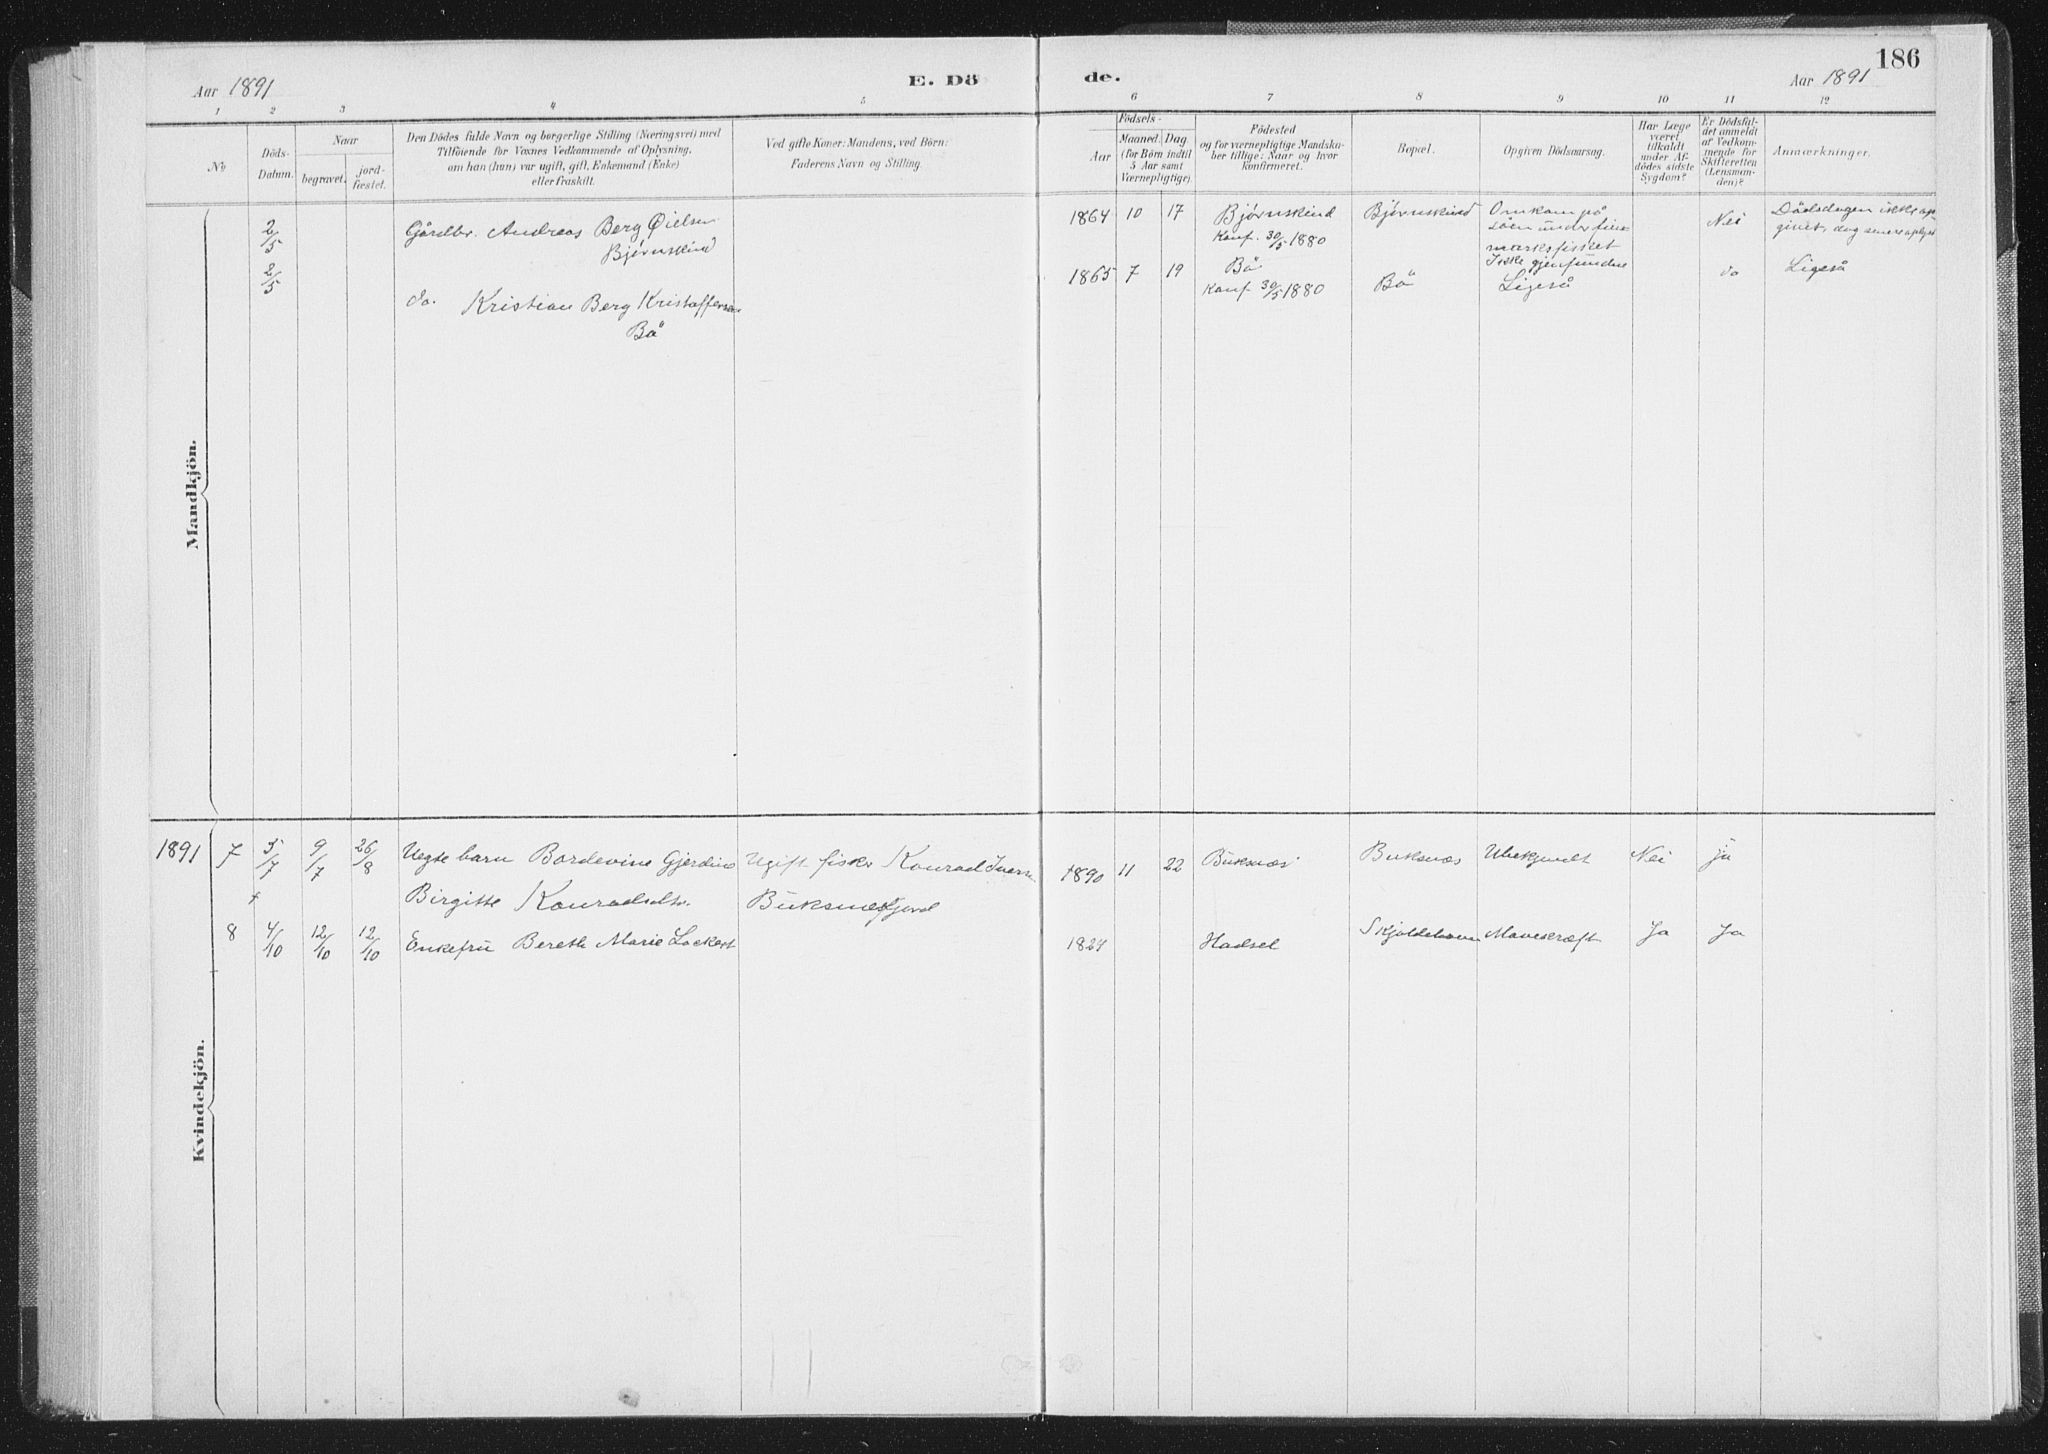 186
Aar 1891
E. Dö
de.
Aar 1891
1 2 3 4 5 6 7 8 9 10 11 12
No
Döds-
Datum.
Naar
begravet.
jord-
fæstet.
Den Dödes fulde Navn og borgerlige Stilling (Næringsvei) med
Tilföiende for Voxnes Vedkommende af Oplysning,
om han (hun) var ugift, gift, Enkemand (Enke)
eller fraskilt.
Ved gifte Koner: Mandens, ved Börn:
Faderens Navn og Stilling.
Födsels-
Aar
Maaned.
Dag
(for Börn indtil
5 Aar samt
Værnepligtige).
Födested
og for værnepligtige Mandska-
ber tillige: Naar og hvor
konfirmeret.
Bopæl.
Opgiven Dödsaarsag.
Har Læge
været
tilkaldt
under Af-
dödes sidste
Sygdom?
Er Dödsfal-
det anmeldt
af Vedkom-
mende for
Skifteretten
(Lensman-
den)?
Anmærkninger.
Mandkjön.
2/5 Gårdbr. Andreas Berg 1864 10 17 Bjørnskind Bjørnskind Omkom på Nei Dödsdagen ikke op
Bjørnskind Konf. 30/5 1880 söen under fin givet, dog senere oplyst
marksfisket
Ikke gjenfundne
2/5 do. Kristian Berg Kristoffersen 1865 7 19 Bö Bö Ligeså do Ligeså
Bö Konf. 30/5 1880
Kvindekjön.
1891 7 5/7 9/7 26/8 Uegte barn Bordevine Gjerdine Ugift fisker Konrad 1890 11 22 Buksnes Buksnes Ubekjendt Nei ja
Birgitte Konradsdtr. Buksnesfjord
8 4/10 12/10 12/10 Enkefru Bereth Marie Lockert 1824 Hadsel Skjoldehavn Mavekræft Ja Ja